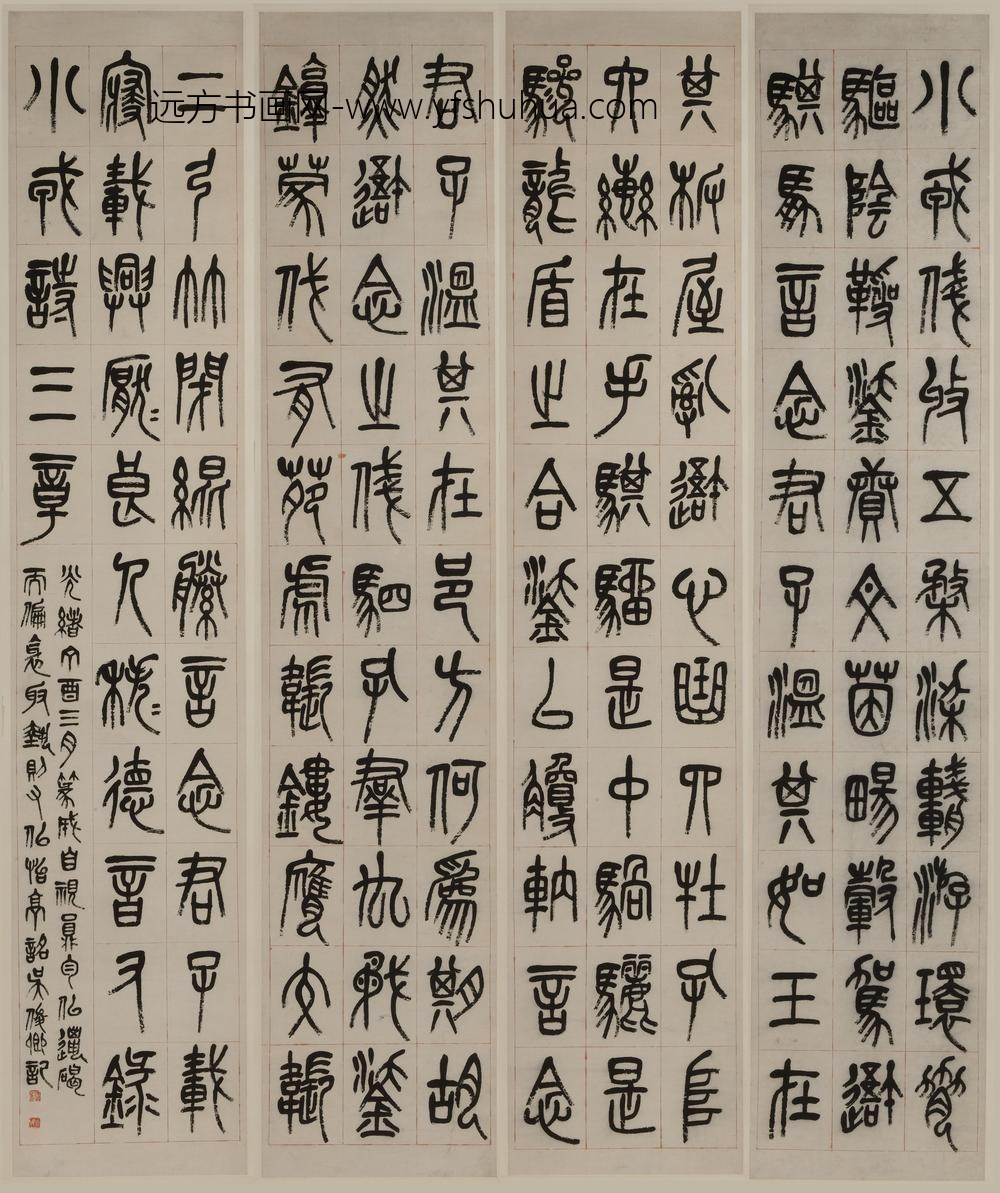 小戎俴收五楘梁輈游環脅
驅陰靷鋈續文茵暢轂駕我
騏馵言念君子溫其如玉在
其板屋亂我心曲四牡孔阜
六轡在手騏騮是中騧驪是
驂龍盾之合鋈以觼軜言念
君子溫其在邑方何為期胡
然我念之俴駟孔群厹矛鋈
錞蒙伐有苑虎韔鏤膺交韔
二弓竹閉緄縢言念君子載
寢載興厭〻良人秩〻德音又錄
小戎詩三章
光緒丁酉三月篆成自視勻似邋碣
而偏衺取勢則又似怡亭銘吳俊卿記
远方书画网-www.yfshuhua.com